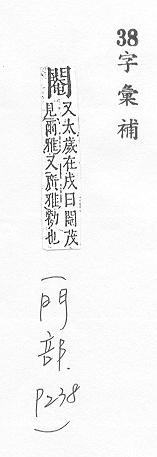 38字彙補
閹又太歲在戌曰閹茂
見爾雅又廣雅勑也
(門部.
P238)